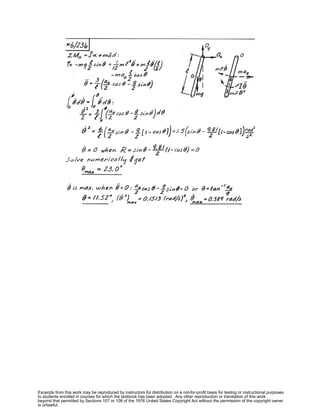 *6/236
ΣM₀ = Iα + mād:
-mg ℓ/2 sinθ = 1/12 mℓ² θ̈ + m ℓ/2 θ̈ (ℓ/2)
- ma₀ ℓ/2 cosθ
θ̈ = 3/ℓ (a₀/2 cosθ - g/2 sinθ)
∫₀^θ̇ θ̇dθ̇ = ∫₀^θ θ̈dθ:
θ̇²/2 = 3/ℓ ∫₀^θ (a₀/2 cosθ - g/2 sinθ)dθ
= 1.5(sinθ - [1-cosθ]) rad²/s²
θ̇ = 0 when R = sinθ - (1-cosθ) = 0
Solve numerically & get
θmax = 23.0°
θ̇ is max. when θ̈ = 0: a₀/2 cosθ - g/2 sinθ = 0 or θ = tan⁻¹ a₀/g
θ = 11.52°, (θ̇²)max = 0.1513 (rad/s)², θ̇max = 0.389 rad/s
Excerpts from this work may be reproduced by instructors for distribution on a not-for-profit basis for testing or instructional purposes
to students enrolled in courses for which the textbook has been adopted. Any other reproduction or translation of this work
beyond that permitted by Sections 107 or 108 of the 1976 United States Copyright Act without the permission of the copyright owner
is unlawful.